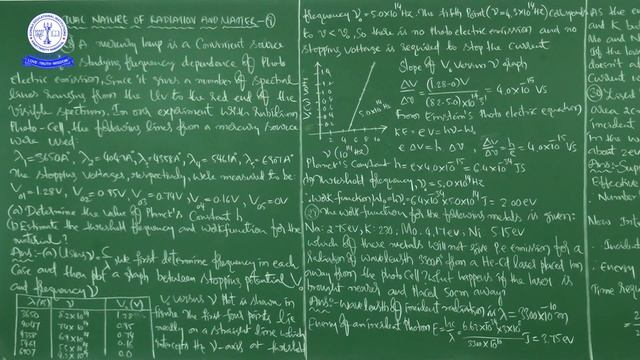 DUAL NATURE OF RADIATION AND MATTER-
LOVE TRUTH WISDOM
A mercury lamp is a Convenient source
studying frequency dependence of Photo
electric emission, Since it gives a number of spectral
lines ranging from the UV to the red end of the
visible spectrum. In our experiment with Rubidium
Photo-Cell, the following lines from a mercury source
were used:
λ₁=3650A°, λ₂=4047A°, λ₃=4358A°, λ₄=5461A°, λ₅=6907A°
The stopping voltages, respectively, were measured to be:
V₀₁=1.28V, V₀₂=0.95V, V₀₃=0.74V, V₀₄=0.16V, V₀₅=0V
(a) Determine the value of Planck's Constant h
(b) Estimate the threshold frequency and workfunction for the
material?
Ans:-(a) Using ν=c/λ we first determine frequency in each
Case and then plot a graph between stopping potential V₀
and frequency ν
λ(A°) ν(Hz) V₀(V)
3650 8.2×10¹⁴ 1.28
4047 7.4×10¹⁴ 0.95
4358 6.9×10¹⁴ 0.74
5461 5.5×10¹⁴ 0.16
6907 4.3×10¹⁴ 0.0
V₀ versus ν plot is shown in
figure The first four points lie
nearly on a straight line which
intercepts the ν-axis at threshold
frequency ν₀=5.0×10¹⁴Hz. The fifth Point (ν=4.3×10¹⁴Hz) corresponds
to ν<ν₀, So there is no Photo electric emission and no
stopping voltage is required to stop the current
V₀(V)
5.0×10¹⁴Hz
2 4 6 8 10
ν(10¹⁴Hz)
Slope of V₀ versus ν graph
ΔV/Δν = (1.28-0)V/(8.2-5.0)×10¹⁴s⁻¹ = 4.0×10⁻¹⁵ Vs
From Einstein's Photo electric equation
KE=eV=hν-W₀
eΔV=hΔν, ΔV/Δν=h/e=4.0×10⁻¹⁵Vs
Planck's Constant h=e×4.0×10⁻¹⁵=6.4×10⁻³⁴JS
(b) Threshold frequency, ν₀=5.0×10¹⁴Hz
Work function (W₀)=hν₀=6.4×10⁻³⁴×5.0×10¹⁴J=2.00eV
The workfunction for the following metals is given:
Na: 2.75eV, K: 2.30, Mo: 4.17eV, Ni: 5.15eV
which of these metals will not give P.e emission for a
radiation of wavelength 3300A° from a He-Cd laser placed 1m
away from the photo cell? What happens if the laser is
brought nearer and placed 50cm away
Ans:- wavelength of incident radiation is λ=3300×10⁻¹⁰m
Energy of an incident Photon E=hc/λ=6.63×10⁻³⁴×3×10⁸/3300×10⁻¹⁰ J=3.75eV